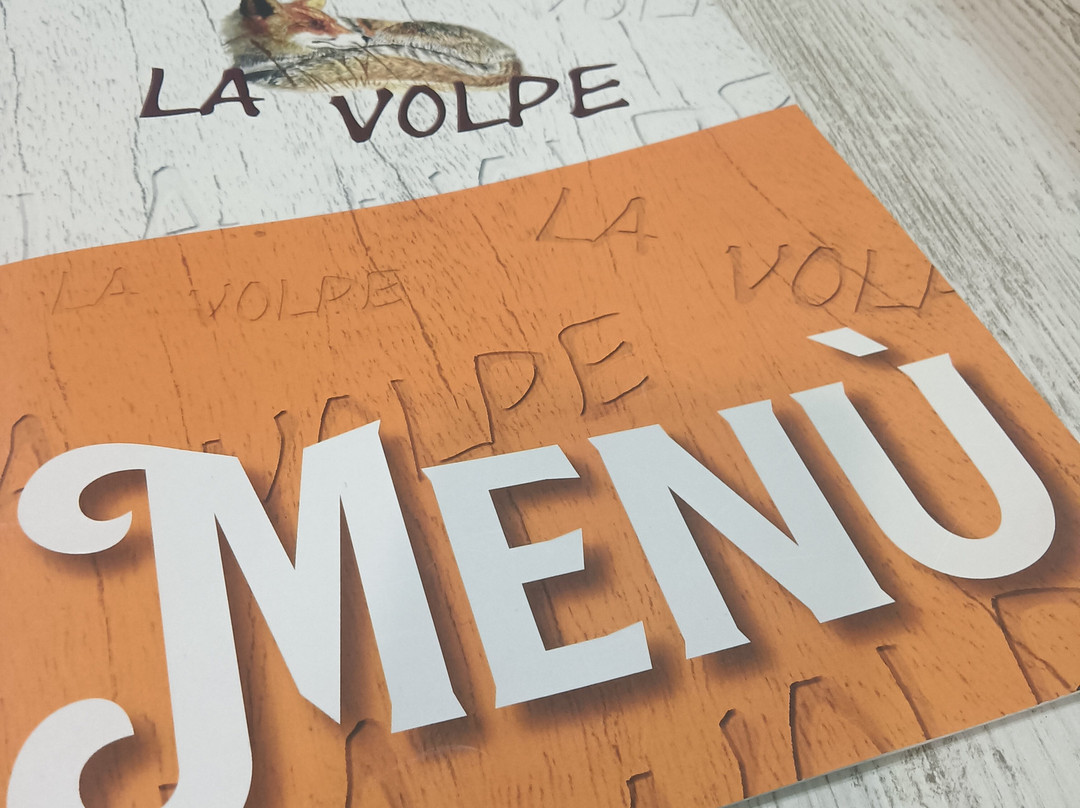 LA VOLPE
LA
VOLP
LA VOLPE
VOLPE
MENÙ